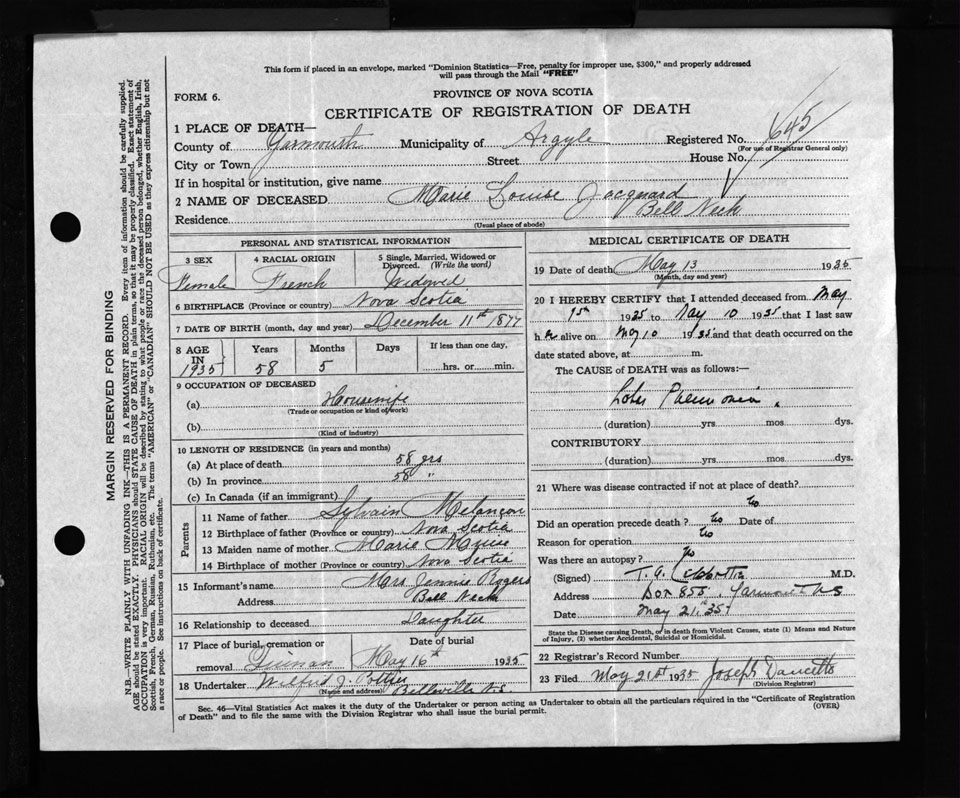 This form if placed in an envelope, marked "Dominion Statistics—Free, penalty for improper use, $300," and properly addressed
will pass through the Mail "FREE"
FORM 6.
PROVINCE OF NOVA SCOTIA
CERTIFICATE OF REGISTRATION OF DEATH
645
1 PLACE OF DEATH—
County of Yarmouth Municipality of Argyle Registered No.
(For use of Registrar General only)
City or Town Street House No.
If in hospital or institution, give name
2 NAME OF DECEASED Marie Louise Jacquard
Residence Bell Neck
(Usual place of abode)
PERSONAL AND STATISTICAL INFORMATION
3 SEX 4 RACIAL ORIGIN 5 Single, Married, Widowed or Divorced. (Write the word)
Female French Widowed
6 BIRTHPLACE (Province or country) Nova Scotia
7 DATE OF BIRTH (month, day and year) December 11th 1877
8 AGE IN 1935 Years Months Days If less than one day,
58 5 hrs. or min.
9 OCCUPATION OF DECEASED
(a) Housewife
(Trade or occupation or kind of work)
(b)
(Kind of industry)
10 LENGTH OF RESIDENCE (in years and months)
(a) At place of death 58 yrs
(b) In province 58 "
(c) In Canada (if an immigrant)
Parents
11 Name of father Sylvain Melançon
12 Birthplace of father (Province or country) Nova Scotia
13 Maiden name of mother Marie Muise
14 Birthplace of mother (Province or country) Nova Scotia
15 Informant's name Mrs Jennie Rogers
Address Bell Neck
16 Relationship to deceased Daughter
17 Place of burial, cremation or removal Quinan Date of burial May 16th 1935
18 Undertaker Wilfred J. Pothier
(Name and address) Belleville N.S
MEDICAL CERTIFICATE OF DEATH
19 Date of death May 13 1935
(Month, day and year)
20 I HEREBY CERTIFY that I attended deceased from May
1935 to May 10 1935 that I last saw
h er alive on May 10 1935 and that death occurred on the
date stated above, at m.
The CAUSE of DEATH was as follows:—
Lobar Pneumonia.
(duration) yrs mos dys.
CONTRIBUTORY
(duration) yrs mos dys.
21 Where was disease contracted if not at place of death?
No
Did an operation precede death? No Date of
Reason for operation No
Was there an autopsy? No
(Signed) T. A. M.D.
Address Box 855, Yarmouth NS
Date May 21st 35
State the Disease causing Death, or in death from Violent Causes, state (1) Means and Nature
of Injury, (2) whether Accidental, Suicidal or Homicidal.
22 Registrar's Record Number
23 Filed May 21st 1935 Joseph Doucette
(Division Registrar)
Sec. 46—Vital Statistics Act makes it the duty of the Undertaker or person acting as Undertaker to obtain all the particulars required in the "Certificate of Registration
of Death" and to file the same with the Division Registrar who shall issue the burial permit.
(OVER)
MARGIN RESERVED FOR BINDING
N.B.—WRITE PLAINLY WITH UNFADING INK—THIS IS A PERMANENT RECORD. Every item of information should be carefully supplied.
AGE should be stated EXACTLY. PHYSICIANS should STATE CAUSE OF DEATH in plain terms, so that it may be properly classified. Exact statement of
OCCUPATION is very important. RACIAL ORIGIN will be described by stating to what people or race the deceased person belonged, whether English, Irish,
Scottish, French, German, Russian, Ruthenian, etc. The terms "AMERICAN" or "CANADIAN" SHOULD NOT BE USED as they express citizenship but not
a race or people. See instructions on back of certificate.